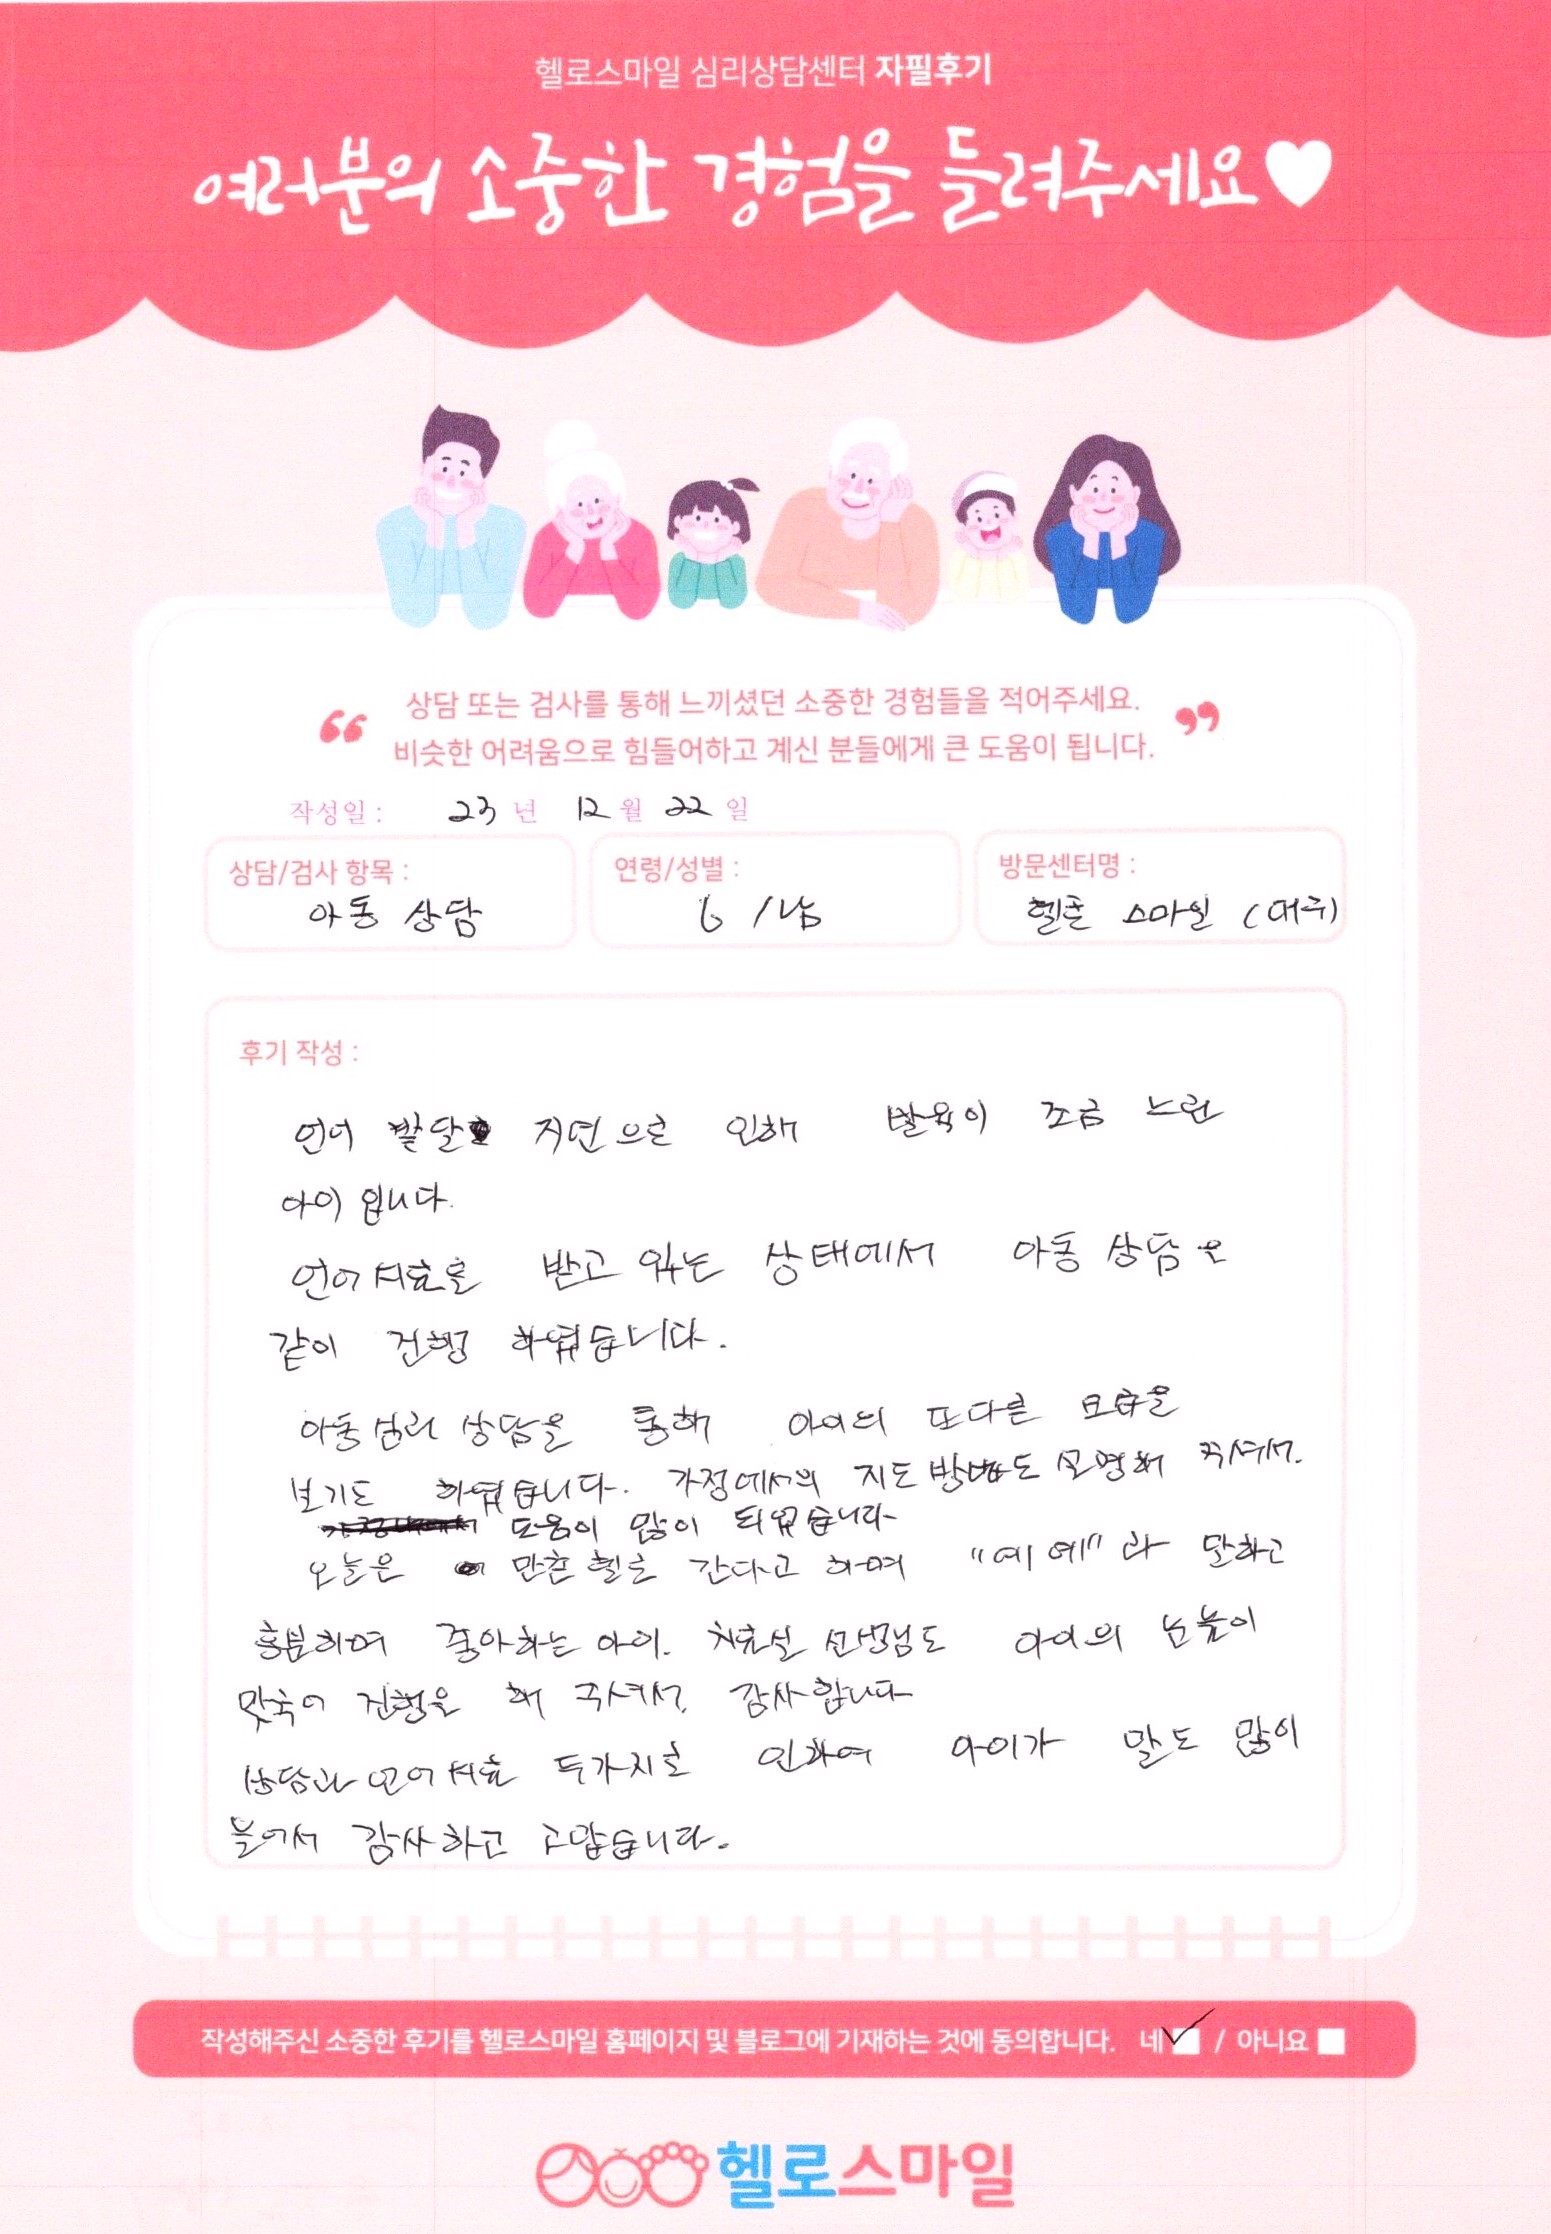 헬로스마일 심리상담센터 자필후기
여러분의 소중한 경험을 들려주세요♥
“ 상담 또는 검사를 통해 느끼셨던 소중한 경험들을 적어주세요. ”
비슷한 어려움으로 힘들어하고 계신 분들에게 큰 도움이 됩니다.
작성일 : 23 년 12 월 22 일
상담/검사 항목 : 연령/성별 : 방문센터명 :
아동 상담 6 / 남 헬로 스마일 (대구)
후기 작성 :
언어 발달 지연으로 인해 발육이 조금 느린
아이 입니다.
언어치료를 받고 있는 상태에서 아동 상담을
같이 진행 하였습니다.
아동심리 상담을 통해 아이의 또다른 모습을
보기도 하였습니다. 가정에서의 지도 방법도 설명해 주셔서.
도움이 많이 되었습니다
오늘은 만촌 헬로 간다고 하며 "예 예"라 말하고
흥분하며 좋아하는 아이. 치료실 선생님도 아이의 눈높이
맞추어 진행을 해 주셔서. 감사합니다
상담과 언어치료 두가지로 인하여 아이가 말도 많이
늘어서 감사하고 고맙습니다.
작성해주신 소중한 후기를 헬로스마일 홈페이지 및 블로그에 기재하는 것에 동의합니다. 네 ✓ / 아니요
헬로스마일